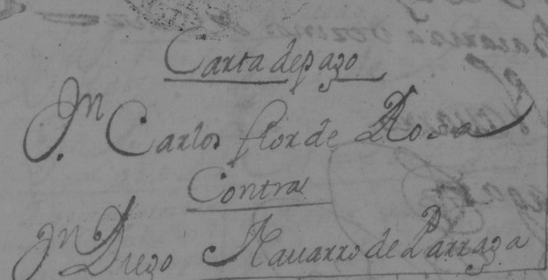 Carta de pago
Dn Carlos flor de Roda
Contra
Dn Diego Nauarro de Parraga